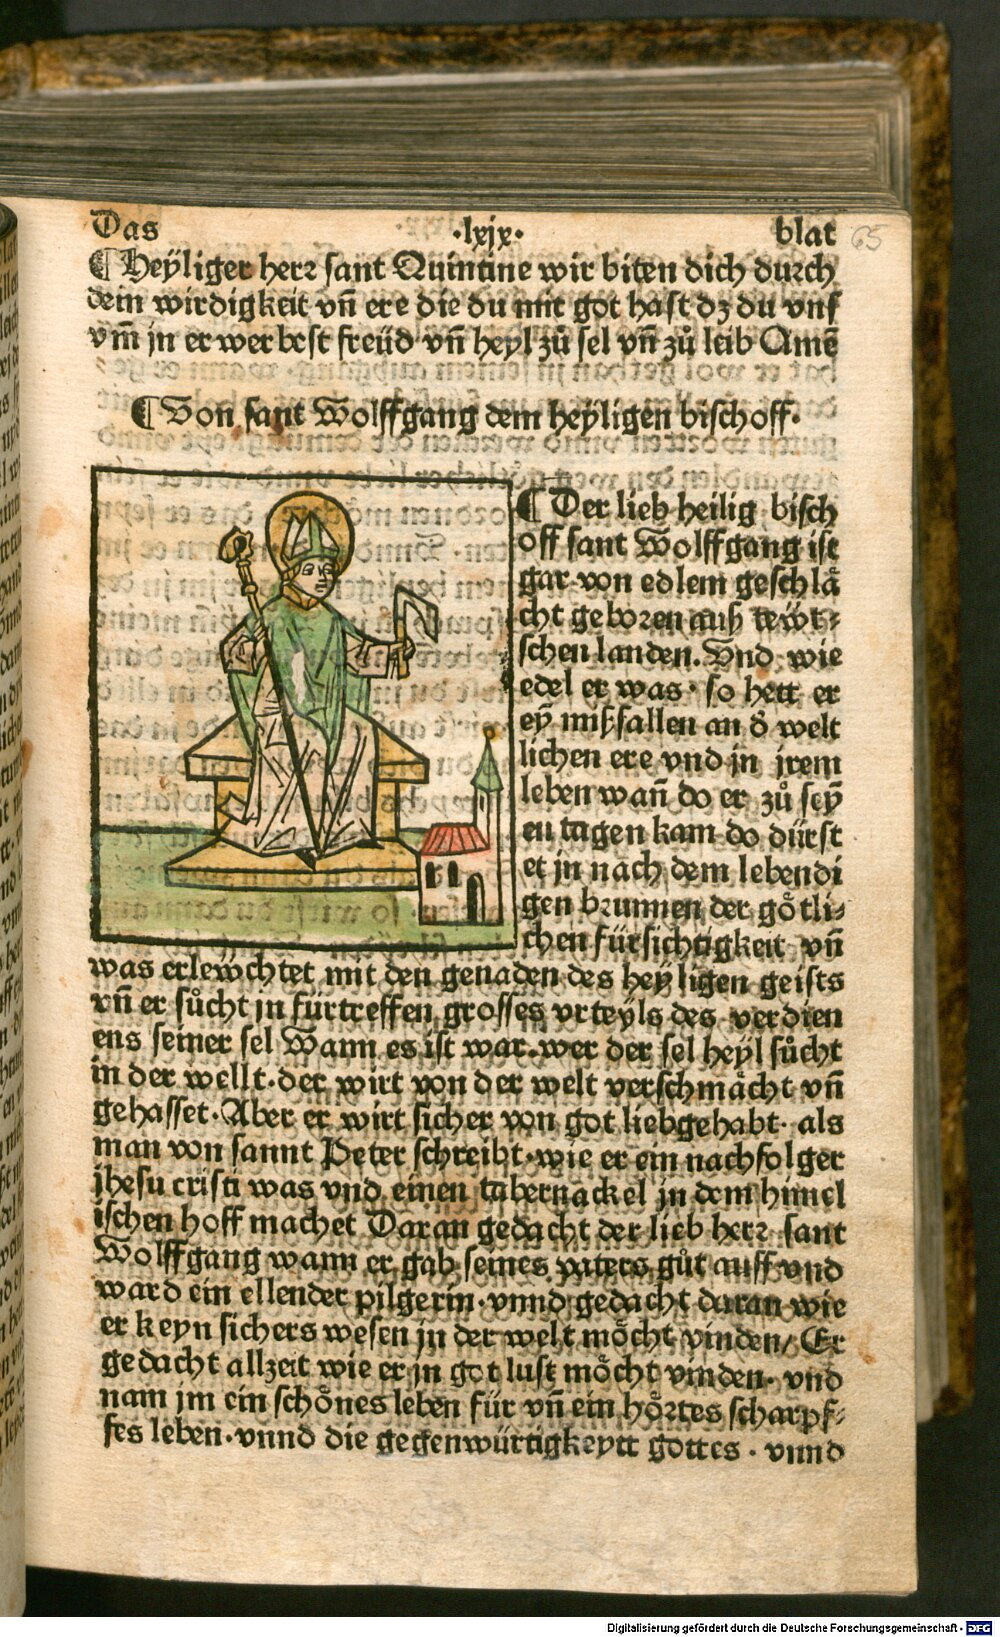 Das .lxjx. blat 65
¶ Heÿliger herr sant Quintine wir biten dich durch
dein wirdigkeit vñ ere die du mit got hast dz du vns
vm̃ jn er werbest freüd vñ heyl zů sel vñ zů leib Amẽ
¶ Von sant Wolffgang dem heÿligen bischoff.
¶ Der lieb heilig bisch
off sant Wolffgang ist
gar von edlem geschlå
cht geboren auß tewt⸗
schen landen. Vnd wie
edel er was. so hett er
eÿ mißfallen an d̓ welt
lichen ere vnd jn jrem
leben wañ do er zů seÿ
en tagen kam do dürst
et jn nach dem lebendi
gen brunnen der gőtli⸗
chen fürsichtigkeit vñ
was erlewchtet mit den genaden des heÿligen geists
vñ er sůcht jn fürtreffen grosses vrteyls des verdien
ens seiner sel Wann es ist war. wer der sel heyl sůcht
in der wellt. der wirt von der welt verschmåcht vñ
gehasset. Aber er wirt sicher von got liebgehabt. als
man von sannt Peter schreibt. wie er ein nachfolger
jhesu cristi was vnd einen tabernackel jn dem himel
ischen hoff machet Daran gedacht der lieb herr sant
Wolffgang wann er gab seines vaters gůt auff vnd
ward ein ellender pilgerin. vnnd gedacht daran wie
er keyn sichers wesen jn der welt mőcht vinden/ Er
gedacht allzeit wie er jn got lust mőcht vinden. vnd
nam jm ein schőnes leben für vñ ein hőrtes scharpf⸗
fes leben. vnnd die gegenwürtigkeytt gottes. vnnd
Digitalisierung gefördert durch die Deutsche Forschungsgemeinschaft - DFG